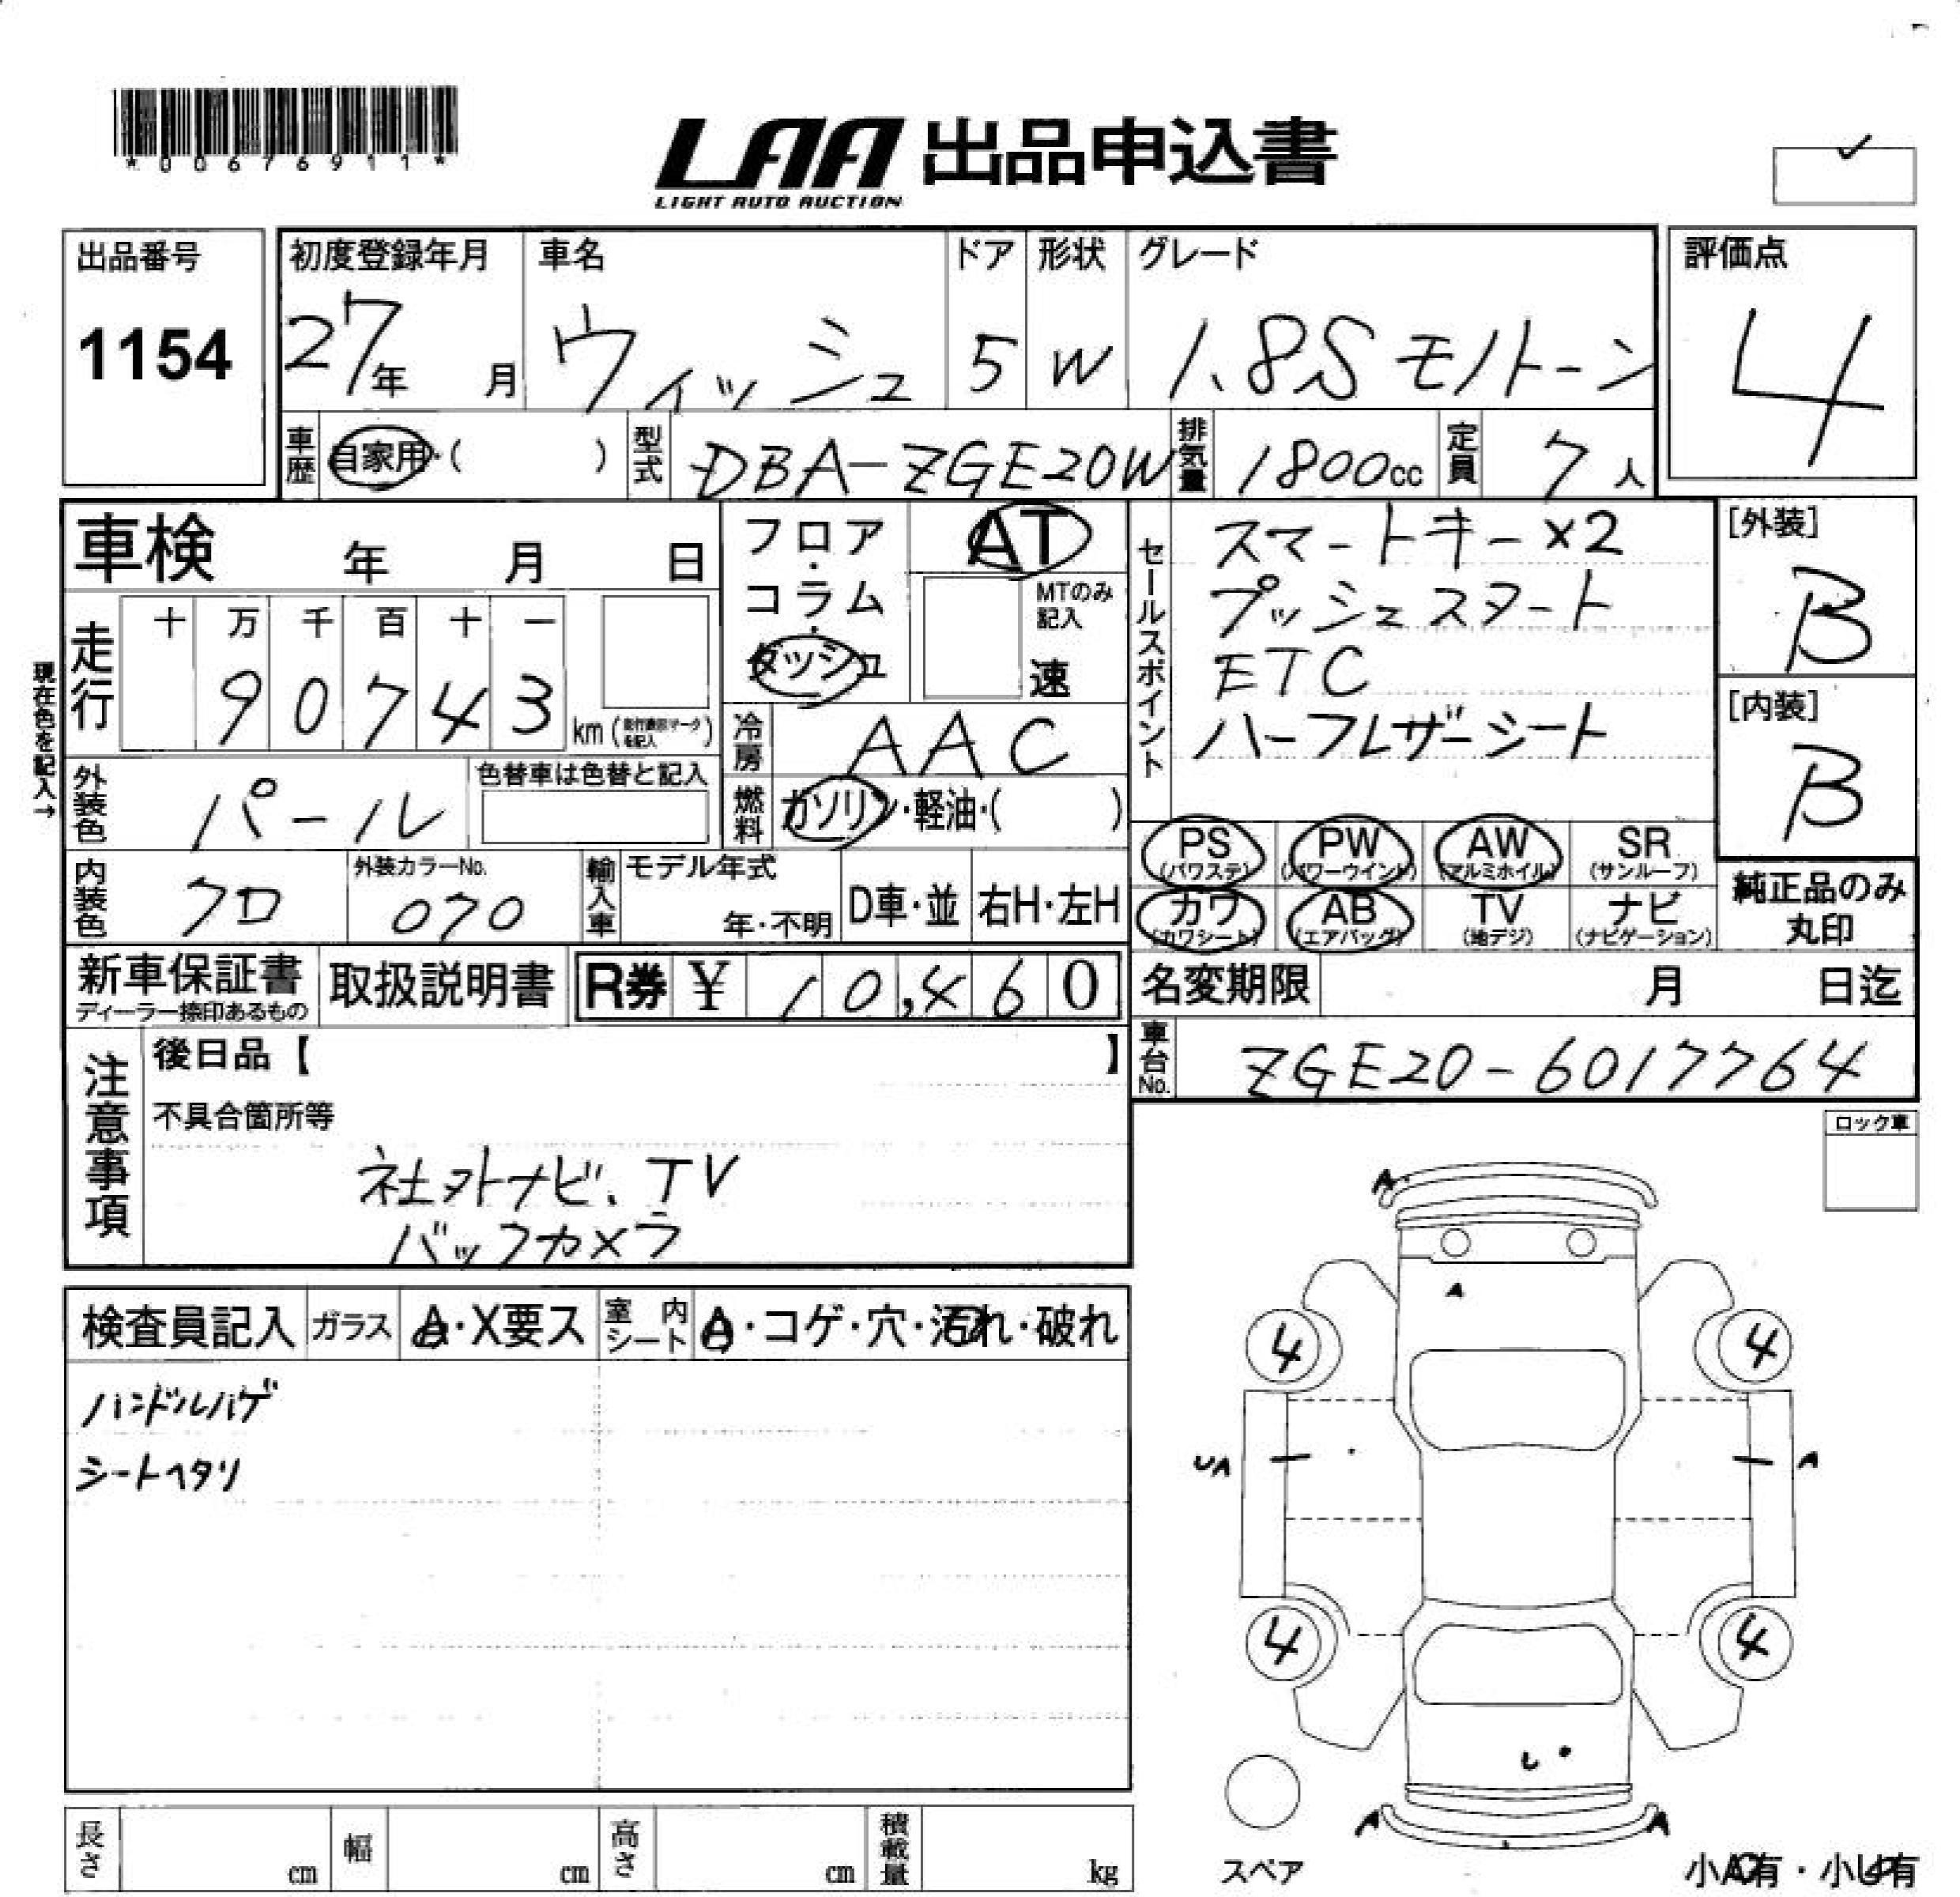 *00676911*
LAA 出品申込書
LIGHT AUTO AUCTION
出品番号
1154
初度登録年月
27年 月
車名
ウィッシュ
ドア
5
形状
W
グレード
1.8S モノトーン
評価点
4
車歴 自家用・( )
型式 DBA-ZGE20W
排気量 1800cc
定員 7人
車検 年 月 日
フロア・コラム・ダッシュ
AT
MTのみ記入
速
セールスポイント
スマートキー×2
プッシュスタート
ETC
ハーフレザーシート
[外装]
B
[内装]
B
現在色を記入→
走行
十 万 千 百 十 一
9 0 7 4 3 km
冷房 AAC
外装色 パール
色替車は色替と記入
燃料 ガソリン・軽油・( )
PS (パワステ)
PW (パワーウインド)
AW (アルミホイル)
SR (サンルーフ)
カワ (カワシート)
AB (エアバッグ)
TV (地デジ)
ナビ (ナビゲーション)
純正品のみ丸印
内装色 クロ
外装カラーNo. 070
輸入車
モデル年式
年・不明
D車・並
右H・左H
新車保証書
ディーラー捺印あるもの
取扱説明書
R券 ¥ 10,460
名変期限 月 日迄
車台No. ZGE20-6017764
注意事項
後日品【 】
不具合箇所等
社外ナビ、TV
バックカメラ
ロック車
検査員記入
ガラス A・X要ス
室内シート A・コゲ・穴・汚れ・破れ
ハンドルハゲ
シートヘタリ
A
A
4 4
UA A
4 4
A A
スペア
小A有・小U有
長さ cm
幅 cm
高さ cm
積載量 kg